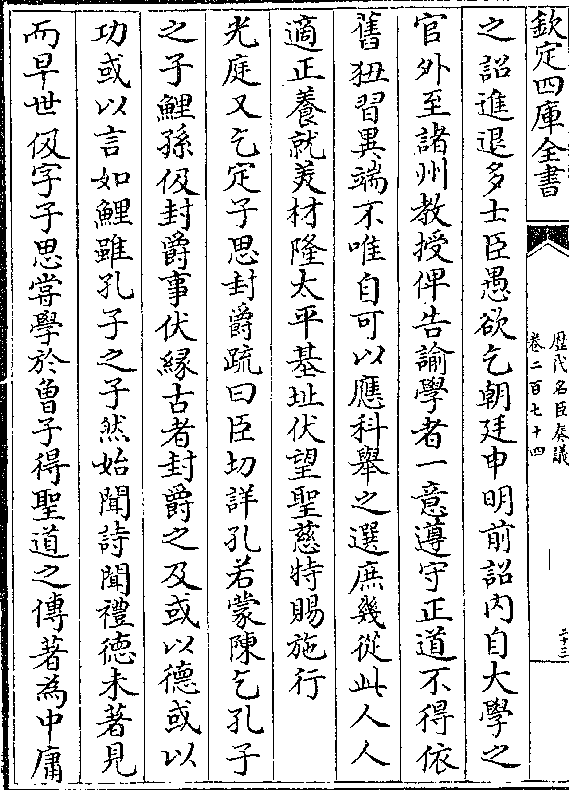 欽定四庫全書
歴代名臣奏議
卷二百七十四
二十三
之詔進退多士臣愚欲乞朝廷申明前詔内自大學之
官外至諸州教授俾告諭學者一意遵守正道不得依
舊狃習異端不唯自可以應科舉之選庶幾從此人人
適正養就美材隆太平基址伏望聖慈特賜施行
光庭又乞定子思封爵疏曰臣切詳孔若蒙陳乞孔子
之子鯉孫伋封爵事伏緣古者封爵之及或以德或以
功或以言如鯉雖孔子之子然始聞詩聞禮德未著見
而早世伋字子思嘗學於曾子得聖道之傳著為中庸